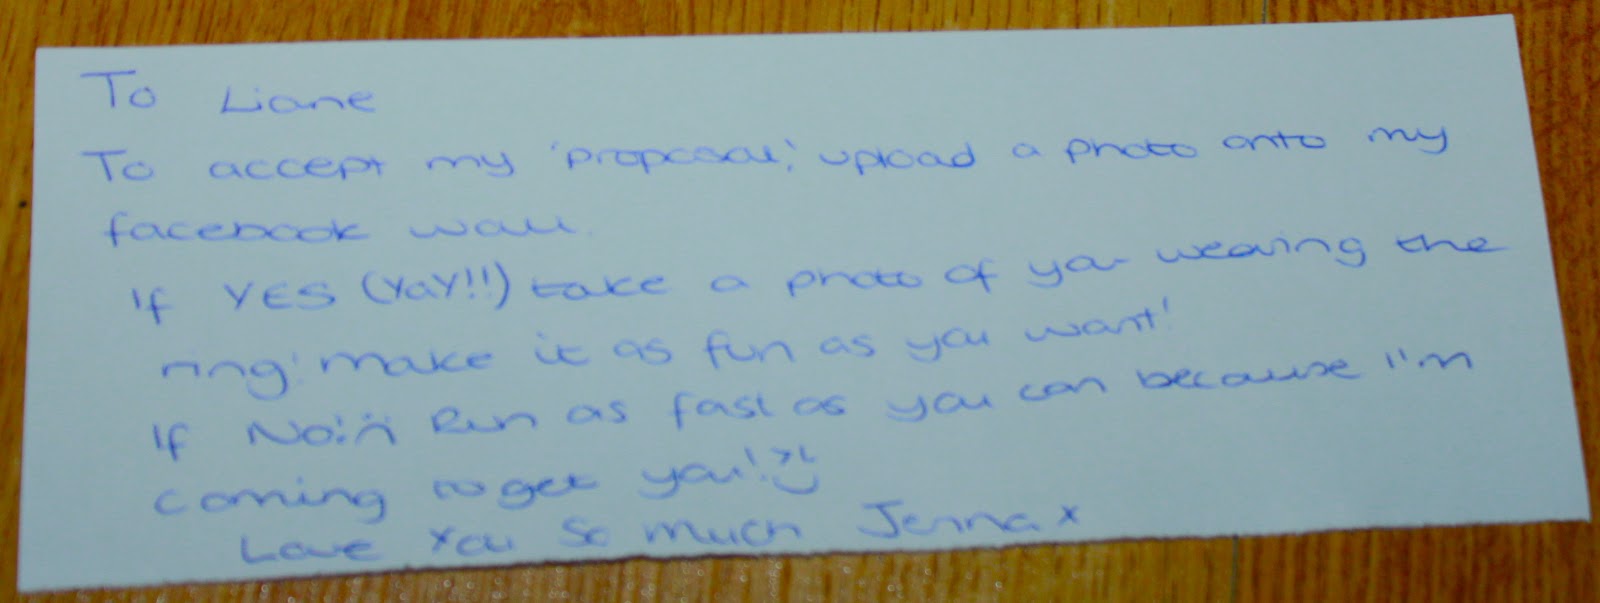 To Liane
To accept my 'proposal', upload a photo onto my
facebook wall.
If YES (YaY!!) take a photo of you wearing the
ring! make it as fun as you want!
If No!:( Run as fast as you can because I'm
coming to get you!
Love You So Much Jenna x